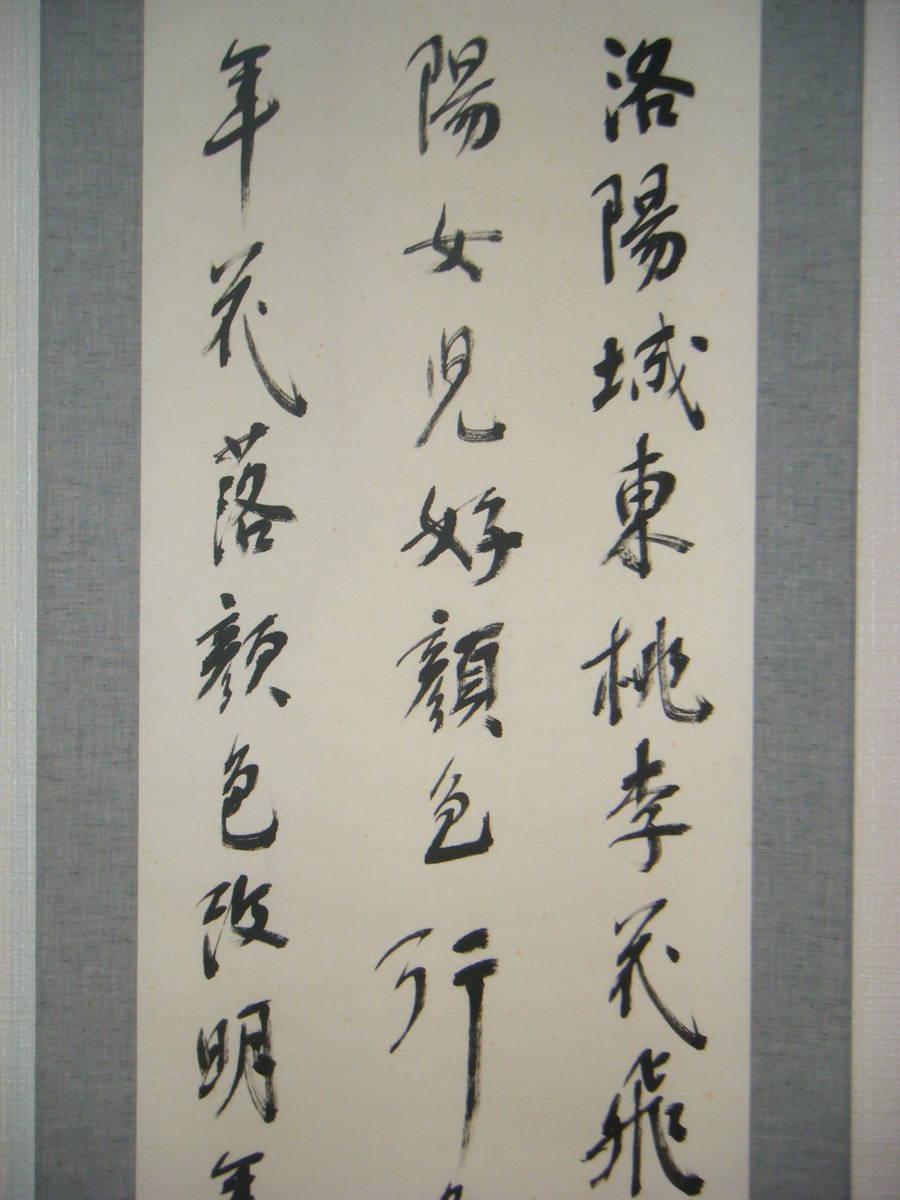 洛陽城東桃李花飛
陽女児好顔色行
年花落顔色改明年